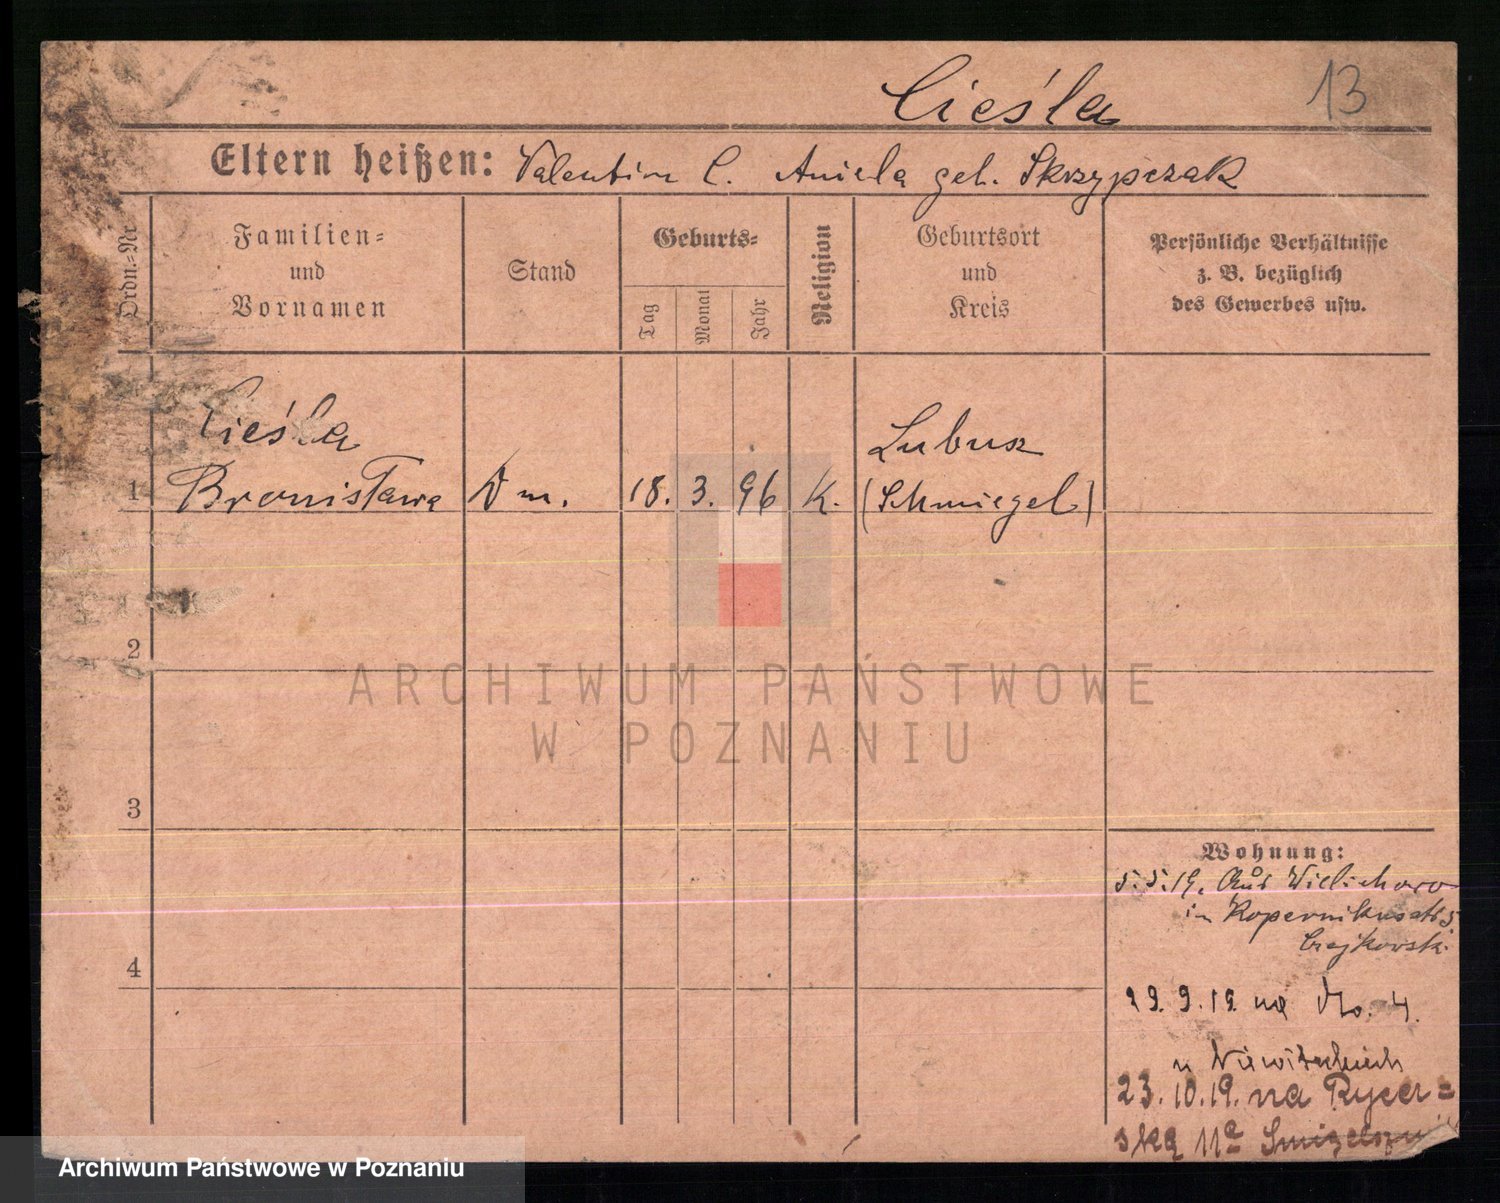 Cieśla 13
Eltern heißen: Valentin C. Aniela geb. Skrzypczak
Ordn.-Nr
Familien=
und
Vornamen
Stand
Geburts=
Tag
Monat
Jahr
Religion
Geburtsort
und
Kreis
Persönliche Verhältnisse
z. B. bezüglich
des Gewerbes usw.
Cieśla Lubusz
1 Bronisława Dm. 18. 3. 96 K. (Schmiegel)
2
ARCHIWUM PAŃSTWOWE
W POZNANIU
3
Wohnung:
5.5.19. Aus Wielichowo
in Kopernikusstr 5
4
29. 9. 19. na No. 4.
u
23. 10. 19. na Rycer=
ską 11a
Archiwum Państwowe w Poznaniu